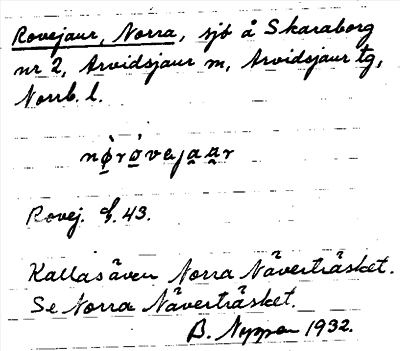 Rovejaur, Norra, sjö å Skaraborg
nr 2, Arvidsjaur m, Arvidsjaur tg,
Norrb. l.
Rovej. 43.
Kallas även Norra Näverträsket.
Se Norra Näverträsket.
B. Nyman 1932.